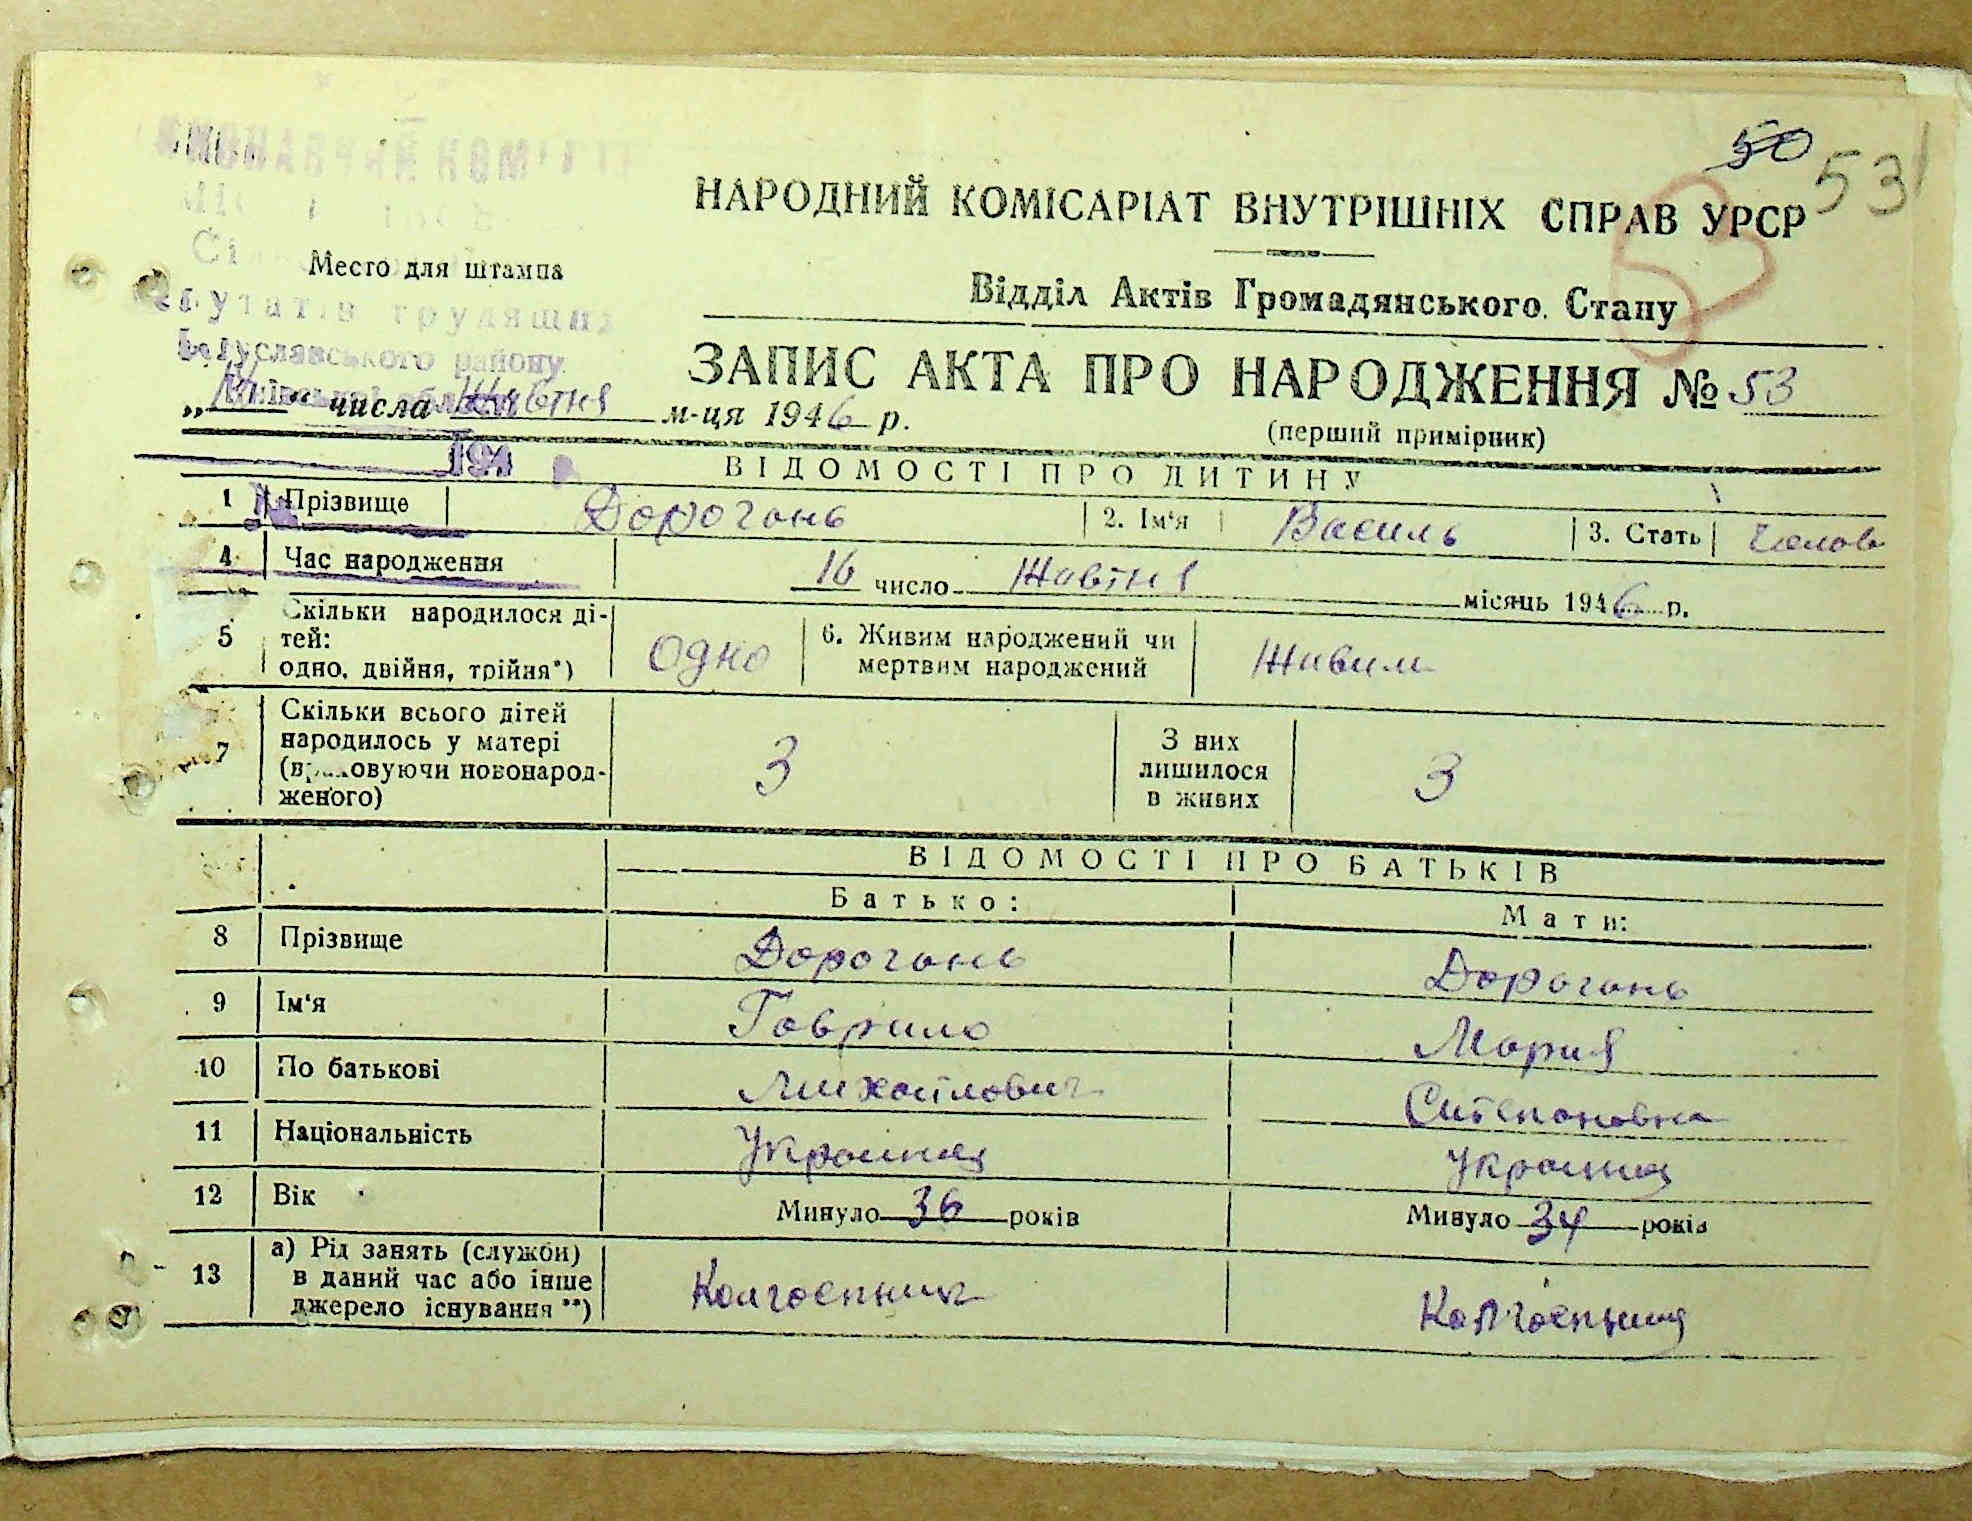 50 53
НАРОДНИЙ КОМІСАРІАТ ВНУТРІШНІХ СПРАВ УРСР
53
Место для штампа
Відділ Актів Громадянського Стану
утатів трудящих
Богуславського району
ЗАПИС АКТА ПРО НАРОДЖЕННЯ № 53
„ “ числа Жовтня м-ця 1946 р.
(перший примірник)
194
ВІДОМОСТІ ПРО ДИТИНУ
1 Прізвище Дорогань 2. Ім‘я Василь 3. Стать Чолов
4 Час народження 16 число Жовтня місяць 1946 р.
5 Скільки народилося ді-
тей:
одно, двійня, трійня*) Одно
6. Живим народжений чи
мертвим народжений Живим
7 Скільки всього дітей
народилось у матері
(враховуючи новонарод-
женого) 3
З них
лишилося
в живих 3
ВІДОМОСТІ ПРО БАТЬКІВ
Батько: Мати:
8 Прізвище Дорогань Дорогань
9 Ім‘я Гаврило Мария
10 По батькові Михайлович Ситепановна
11 Національність Украинец
12 Вік Минуло 36 років Минуло 34 років
13 а) Рід занять (служби)
в даний час або інше
джерело існування **) Колгоспник Колгоспниця